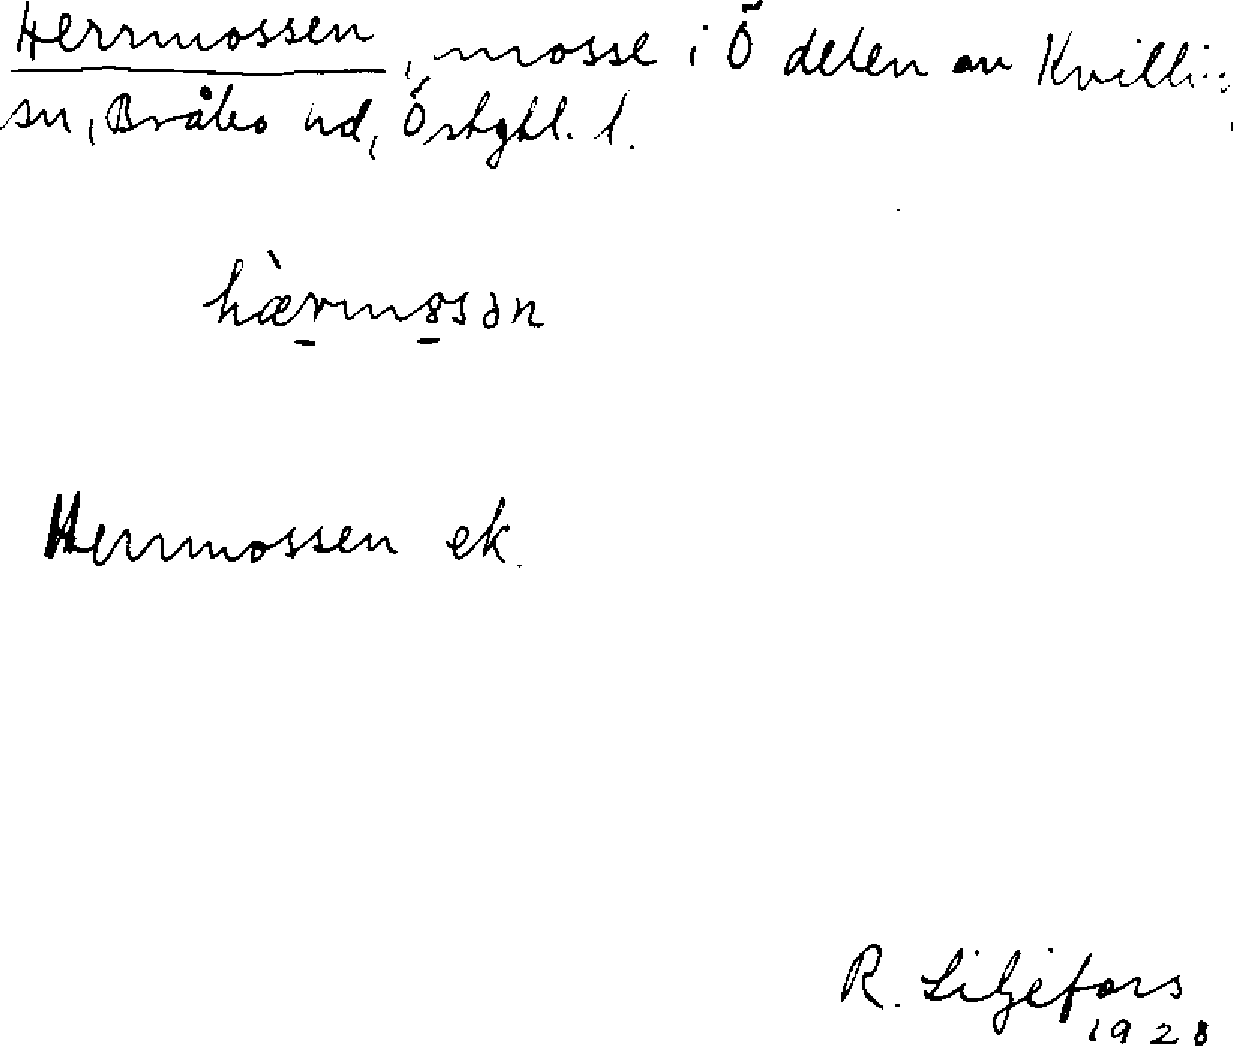 Herrmossen, mosse i Ö delen av Kvilli..
sn, Bråbo hd, Östgtl. l.
hæ̀rmosən
Herrmossen ek.
R. Liljefors
1928